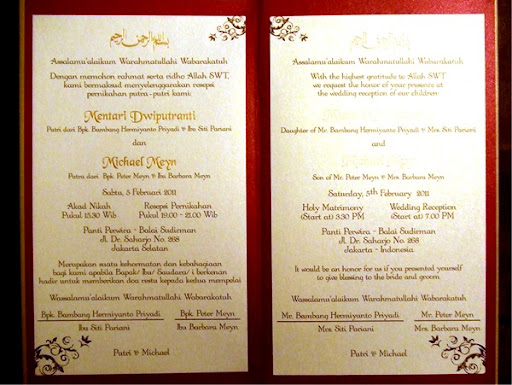 بسم الله الرحمن الرحيم
Assalamu'alaikum Warahmatullahi Wabarakatuh
Dengan memohon rahmat serta ridho Allah SWT,
kami bermaksud menyelenggarakan resepsi
pernikahan putra-putri kami:
Mentari Dwiputranti
Putri dari Bpk. Bambang Hermiyanto Priyadi & Ibu Siti Pariani
dan
Michael Meyn
Putra dari Bpk. Peter Meyn & Ibu Barbara Meyn
Sabtu, 5 Februari 2011
Akad Nikah Resepsi Pernikahan
Pukul 15.30 Wib Pukul 19.00 - 21.00 Wib
Panti Perwira - Balai Sudirman
Jl. Dr. Saharjo No. 268
Jakarta Selatan
Merupakan suatu kehormatan dan kebahagiaan
bagi kami apabila Bapak/ Ibu/ Saudara/ i berkenan
hadir untuk memberikan doa restu kepada kedua mempelai
Wassalamu'alaikum Warahmatullahi Wabarakatuh
Bpk. Bambang Hermiyanto Priyadi Bpk. Peter Meyn
Ibu Siti Pariani Ibu Barbara Meyn
Putri & Michael
Assalamu'alaikum Warahmatullahi Wabarakatuh
With the highest gratitude to Allah SWT
we request the honor of your presence at
the wedding reception of our children:
Daughter of Mr. Bambang Hermiyanto Priyadi & Mrs. Siti Pariani
and
Son of Mr. Peter Meyn & Mrs. Barbara Meyn
Saturday, 5th February 2011
Holy Matrimony Wedding Reception
(Start at) 3:30 PM (Start at) 7.00 PM
Panti Perwira - Balai Sudirman
Jl. Dr. Saharjo No. 268
Jakarta - Indonesia
It would be an honor for us if you presented yourself
to give blessing to the bride and groom.
Wassalamu'alaikum Warahmatullahi Wabarakatuh
Mr. Bambang Hermiyanto Priyadi Mr. Peter Meyn
Mrs. Siti Pariani Mrs. Barbara Meyn
Putri & Michael